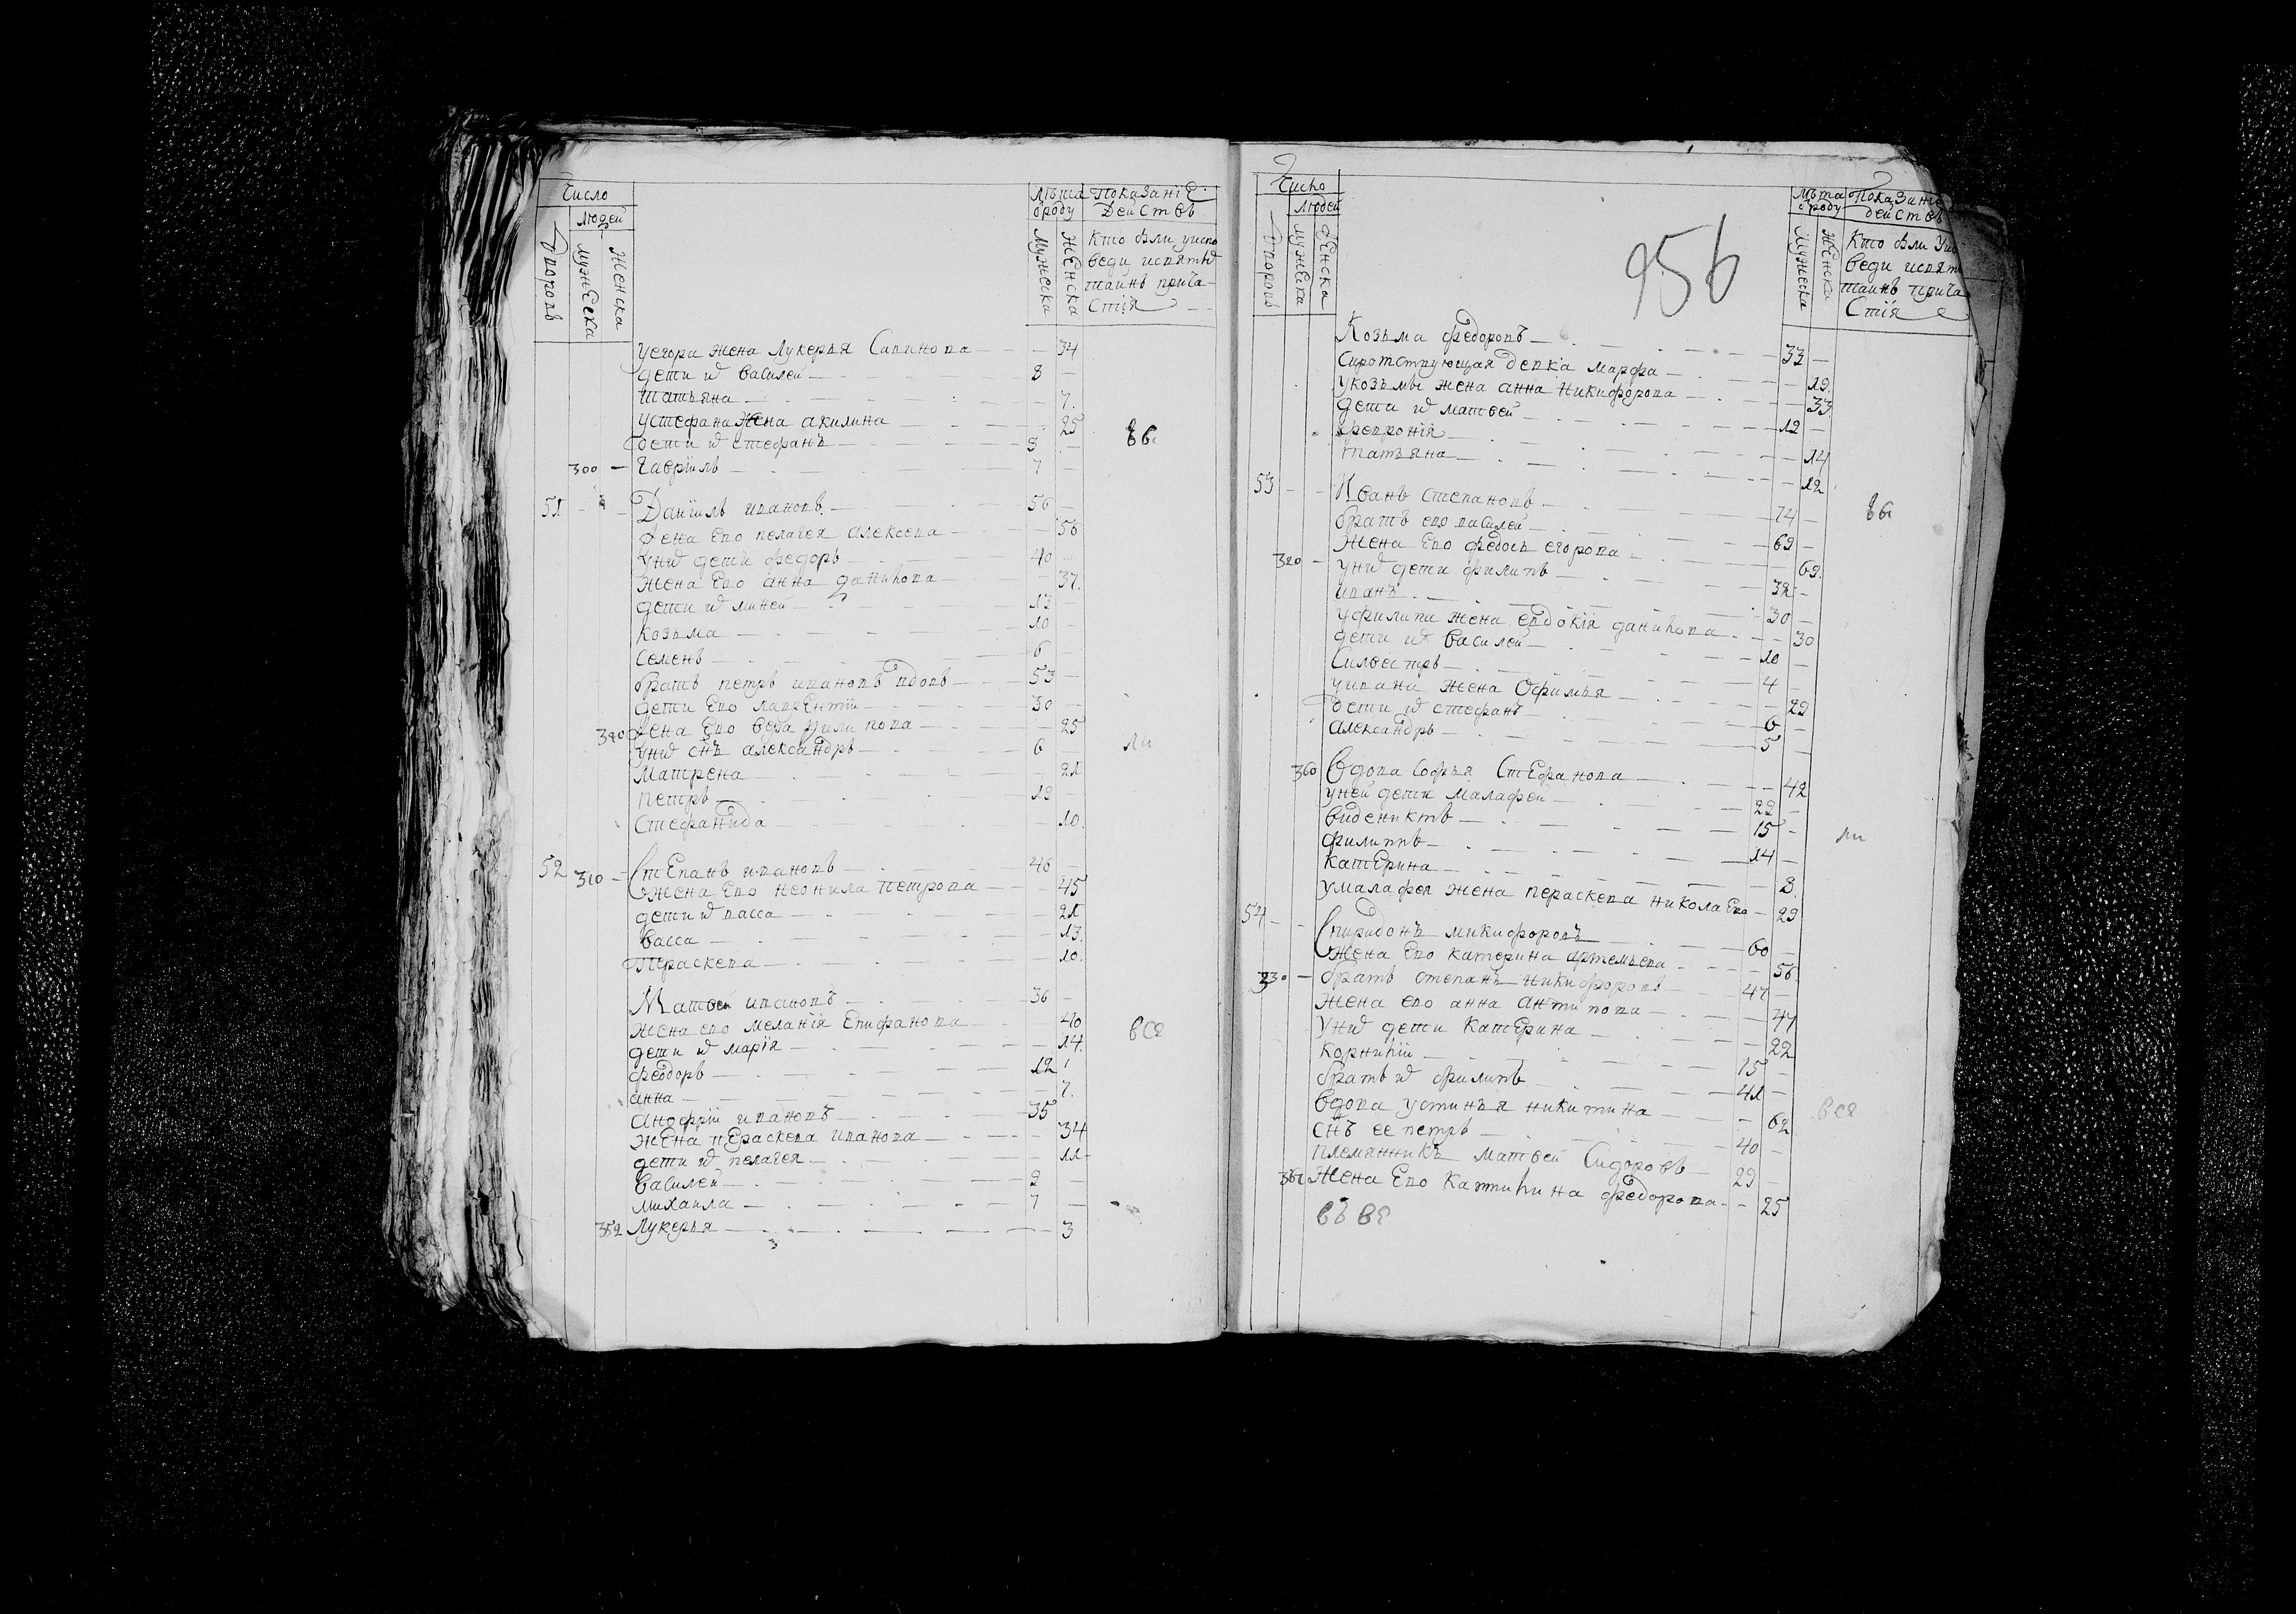 Число
людей
Лѣта
ѿроду
Показаніе
Действъ
дворовъ
мужеска
женска
мужеска
женска
кто были уиспо
веди исвятыѯ
таинъ прича
стія
уегора жена лукерья Савинова 34
дети иѯ василей 8
татьяна 7
устефана жена акилина 25
дети иѯ стефанъ 8
300 гавріилъ 7
51 Даніилъ ивановъ 56
Жена его пелагея алексеева 56
унихъ дети федоръ 40
жена его анна данилова 37
дети иѯ миней 13
козьма 10
семенъ 6
братъ петръ ивановъ вдовъ 53
дети его лаврентіи 30
жена его вера 25
унихъ снъ александръ 6
матрена 21
петръ 12
стефанида 10
52 310 Степанъ ивановъ 46
жена его неонила петрова 45
дети иѯ васса 21
васса 13
пераскева 10
Матвей ивановъ 36
жена его меланія епифанова 40
дети иѯ марія 14
феодоръ 12
анна 7
анофрій ивановъ 35
жена пераскева иванова 34
дети иѯ пелагея 11
василей 9
михаила 7
лукерья 3
вся
956
Число
людей
дворовъ
мужеска
женска
Лѣта
ѿроду
мужеска
женска
кто были
веди
таинъ прича
стія
Козьма федоровъ 33
сиротствующая девка марфа 19
укозьмы жена анна никифорова 33
дети иѯ матвей 12
февронія 14
татьяна 12
53 Иванъ степановъ 74
братъ его василей 69
жена его федосья егорова 69
унихъ дети филипъ 32
иванъ 30
уфилипа жена евдокія данилова 30
дети иѯ василей 10
силвестръ 4
уивана жена офимья 29
дети иѯ стефанъ 6
александръ 5
360 Вдова софья стефанова 42
уней дети малафей 22
видениктъ 15
филиппъ 14
катерина 8
умалафея жена пераскева николаева 29
54 Спиридонъ микифоровъ 60
жена его катерина артемьева 56
братъ степанъ никифоровъ 47
жена его анна антипова 47
унихъ дети катерина 22
корнилій 15
братъ иѯ филипъ 41
вдова устинья никитина 62
снъ ее петръ 40
племянникъ матвей сидоровъ 29
жена его катилина федорова 25
вся